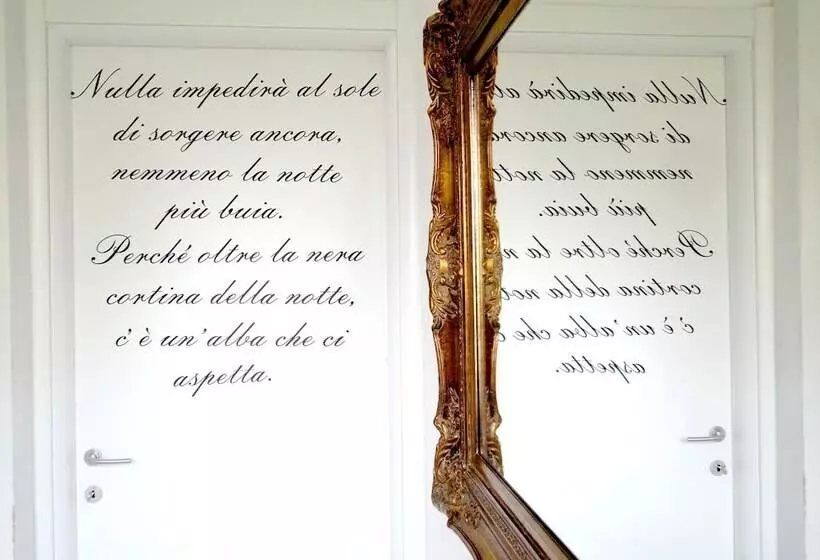 Nulla impedirà al sole
di sorgere ancora,
nemmeno la notte
più buia.
Perché oltre la nera
cortina della notte,
c'è un'alba che ci
aspetta.